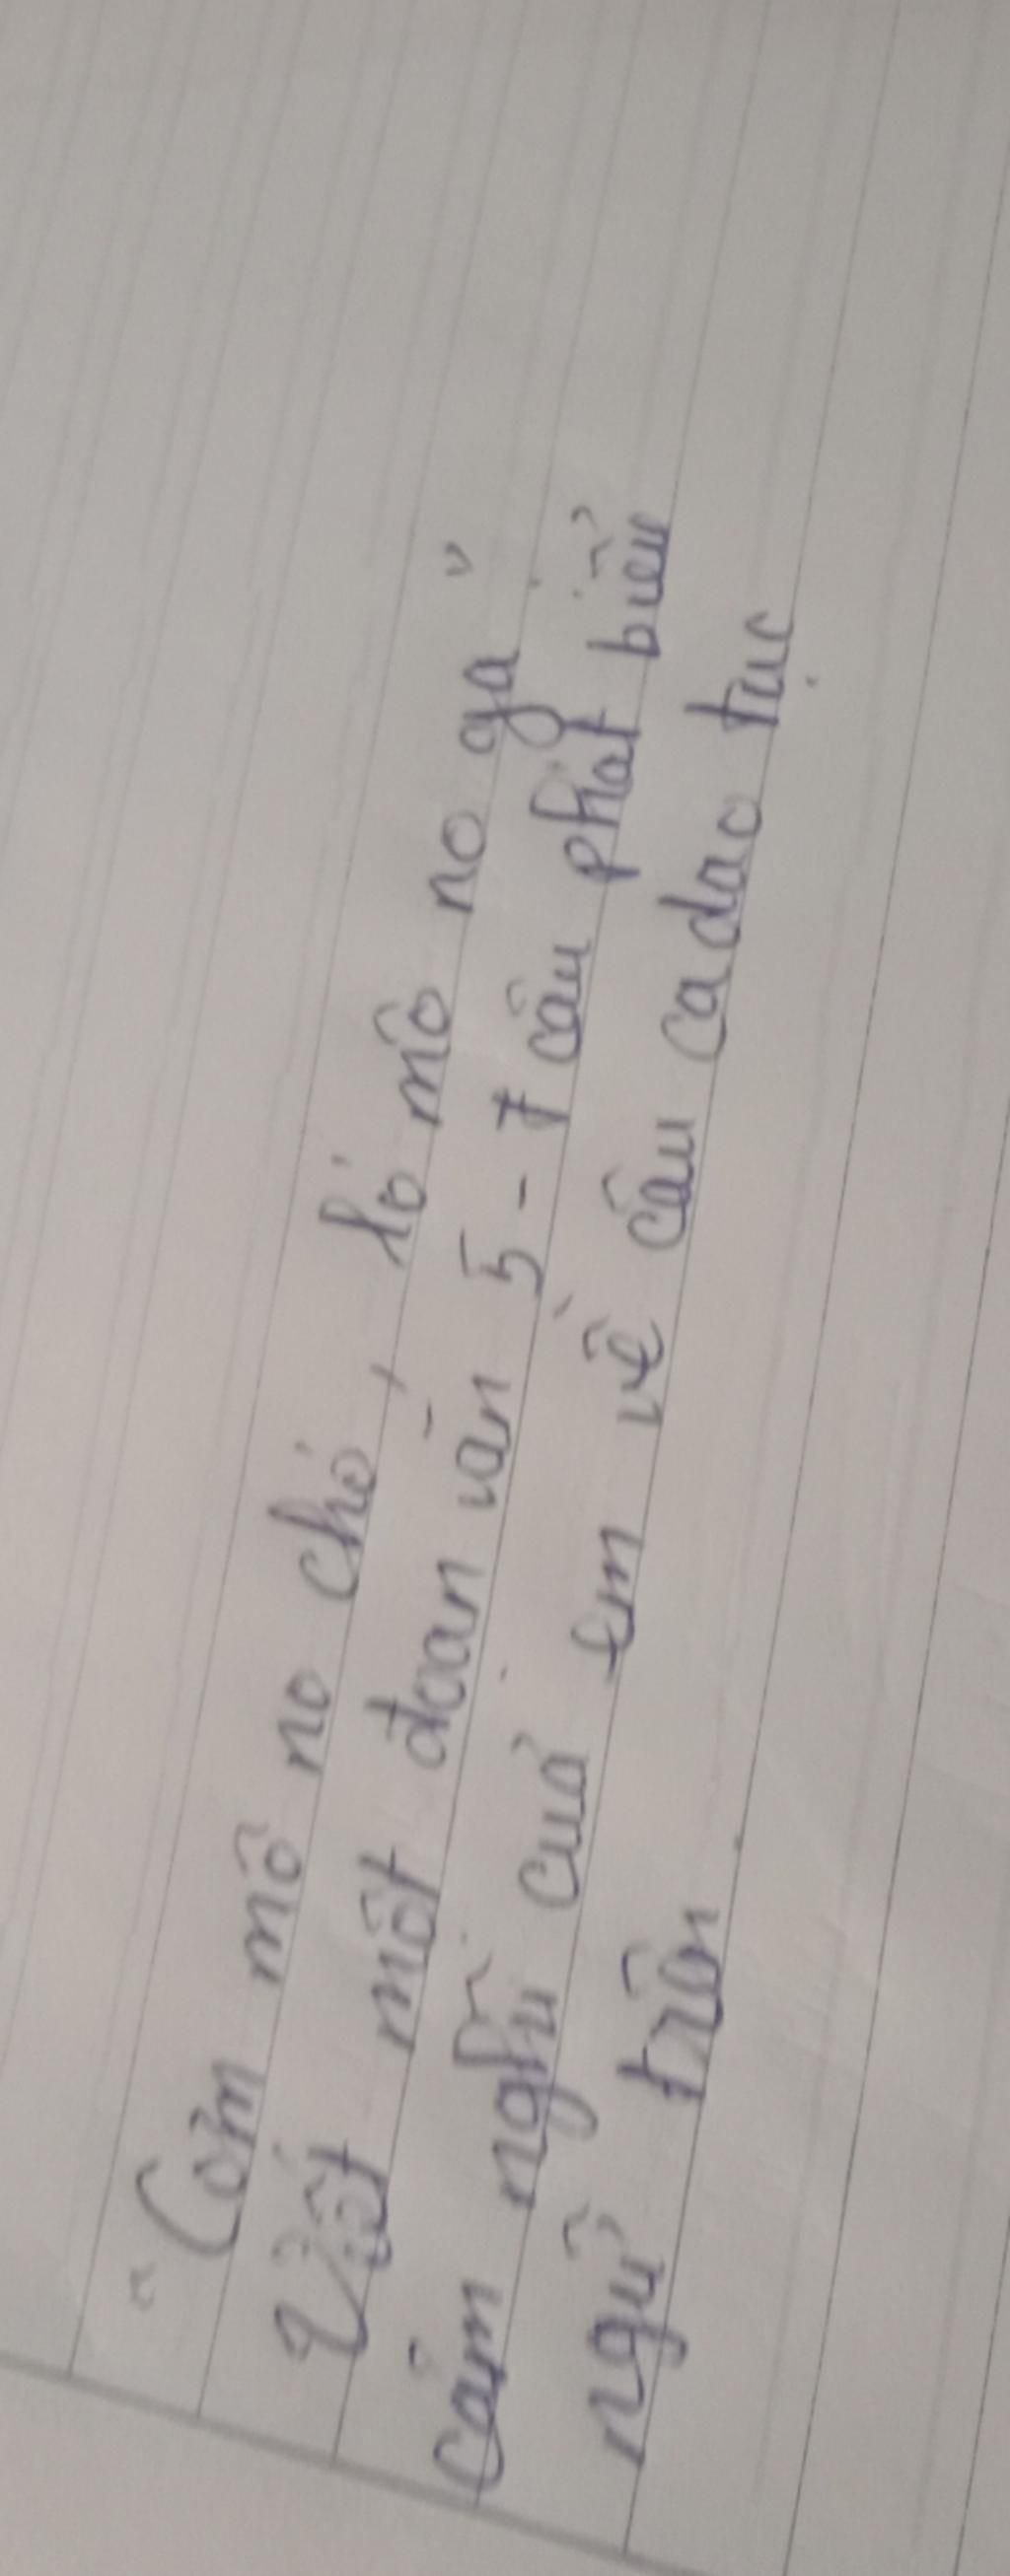 "Cơm mô no chó, ló mô no gà"
Viết một đoạn văn 5-7 câu phát biểu
cảm nghĩ của em về câu ca dao tục
ngữ trên